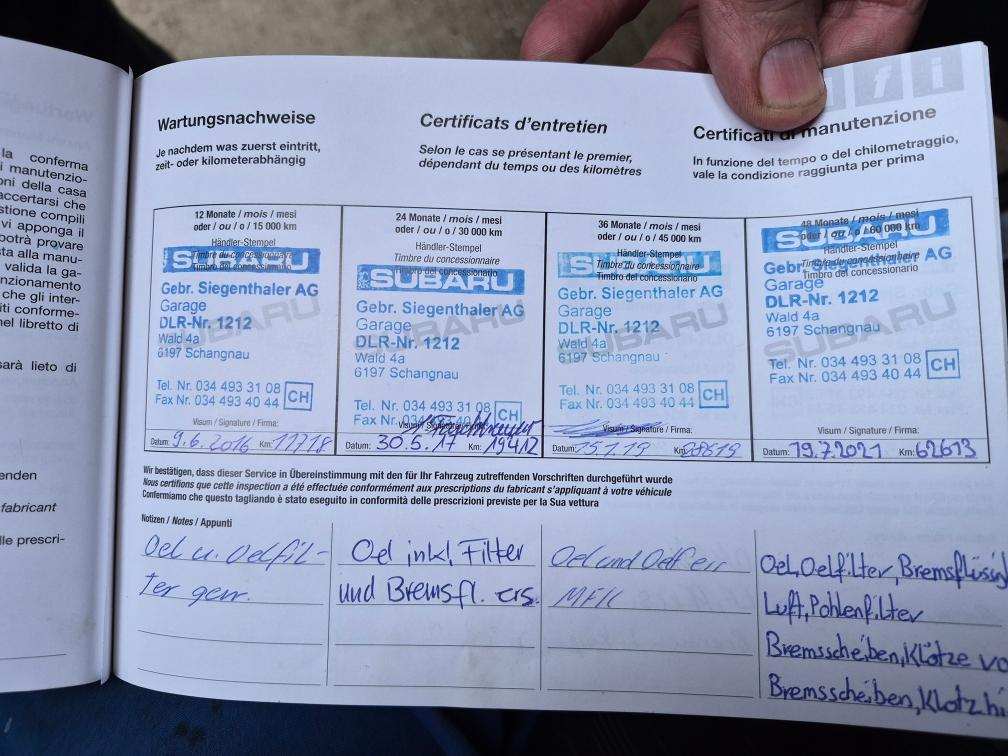 la conferma
i manutenzio-
oni della casa
accertarsi che
stione compili
vi apponga il
potrà provare
sta alla manu-
valida la ga-
nzionamento
che gli inter-
iti conforme-
nel libretto di
sarà lieto di
enden
fabricant
lle prescri-
Wartungsnachweise
Je nachdem was zuerst eintritt,
zeit- oder kilometerabhängig
Certificats d'entretien
Selon le cas se présentant le premier,
dépendant du temps ou des kilomètres
Certificati di manutenzione
In funzione del tempo o del chilometraggio,
vale la condizione raggiunta per prima
12 Monate / mois / mesi
oder / ou / o / 15 000 km
Händler-Stempel
Timbre du concessionnaire
Timbro del concessionario
SUBARU
Gebr. Siegenthaler AG
Garage
DLR-Nr. 1212
Wald 4a
6197 Schangnau
SUBARU
Tel. Nr. 034 493 31 08
Fax Nr. 034 493 40 44
CH
Visum / Signature / Firma:
Datum: 9.6.2016 Km: 11718
24 Monate / mois / mesi
oder / ou / o / 30 000 km
Händler-Stempel
Timbre du concessionnaire
Timbro del concessionario
SUBARU
Gebr. Siegenthaler AG
Garage
DLR-Nr. 1212
Wald 4a
6197 Schangnau
SUBARU
Tel. Nr. 034 493 31 08
Fax Nr. 034 493 40 44
CH
Visum / Signature / Firma:
Datum: 30.5.17 Km: 19412
36 Monate / mois / mesi
oder / ou / o / 45 000 km
Händler-Stempel
Timbre du concessionnaire
Timbro del concessionario
SUBARU
Gebr. Siegenthaler AG
Garage
DLR-Nr. 1212
Wald 4a
6197 Schangnau
SUBARU
Tel. Nr. 034 493 31 08
Fax Nr. 034 493 40 44
CH
Visum / Signature / Firma:
Datum: 15.1.19 Km:
48 Monate / mois / mesi
oder / ou / o / 60 000 km
Händler-Stempel
Timbre du concessionnaire
Timbro del concessionario
SUBARU
Gebr. Siegenthaler AG
Garage
DLR-Nr. 1212
Wald 4a
6197 Schangnau
SUBARU
Tel. Nr. 034 493 31 08
Fax Nr. 034 493 40 44
CH
Visum / Signature / Firma:
Datum: 19.7.2021 Km: 62613
Wir bestätigen, dass dieser Service in Übereinstimmung mit den für Ihr Fahrzeug zutreffenden Vorschriften durchgeführt wurde
Nous certifions que cette inspection a été effectuée conformément aux prescriptions du fabricant s'appliquant à votre véhicule
Confermiamo che questo tagliando è stato eseguito in conformità delle prescrizioni previste per la Sua vettura
Notizen / Notes / Appunti
Oel u. Oelfil-
ter gew.
Oel inkl. Filter
und Bremsfl. ers.
Oel und Oelf err
MFK
Oel, Oelfilter, Bremsflüssi
Luft, Pohlenfilter
Bremsscheiben, Klötze vo
Bremsscheiben, Klotz hi